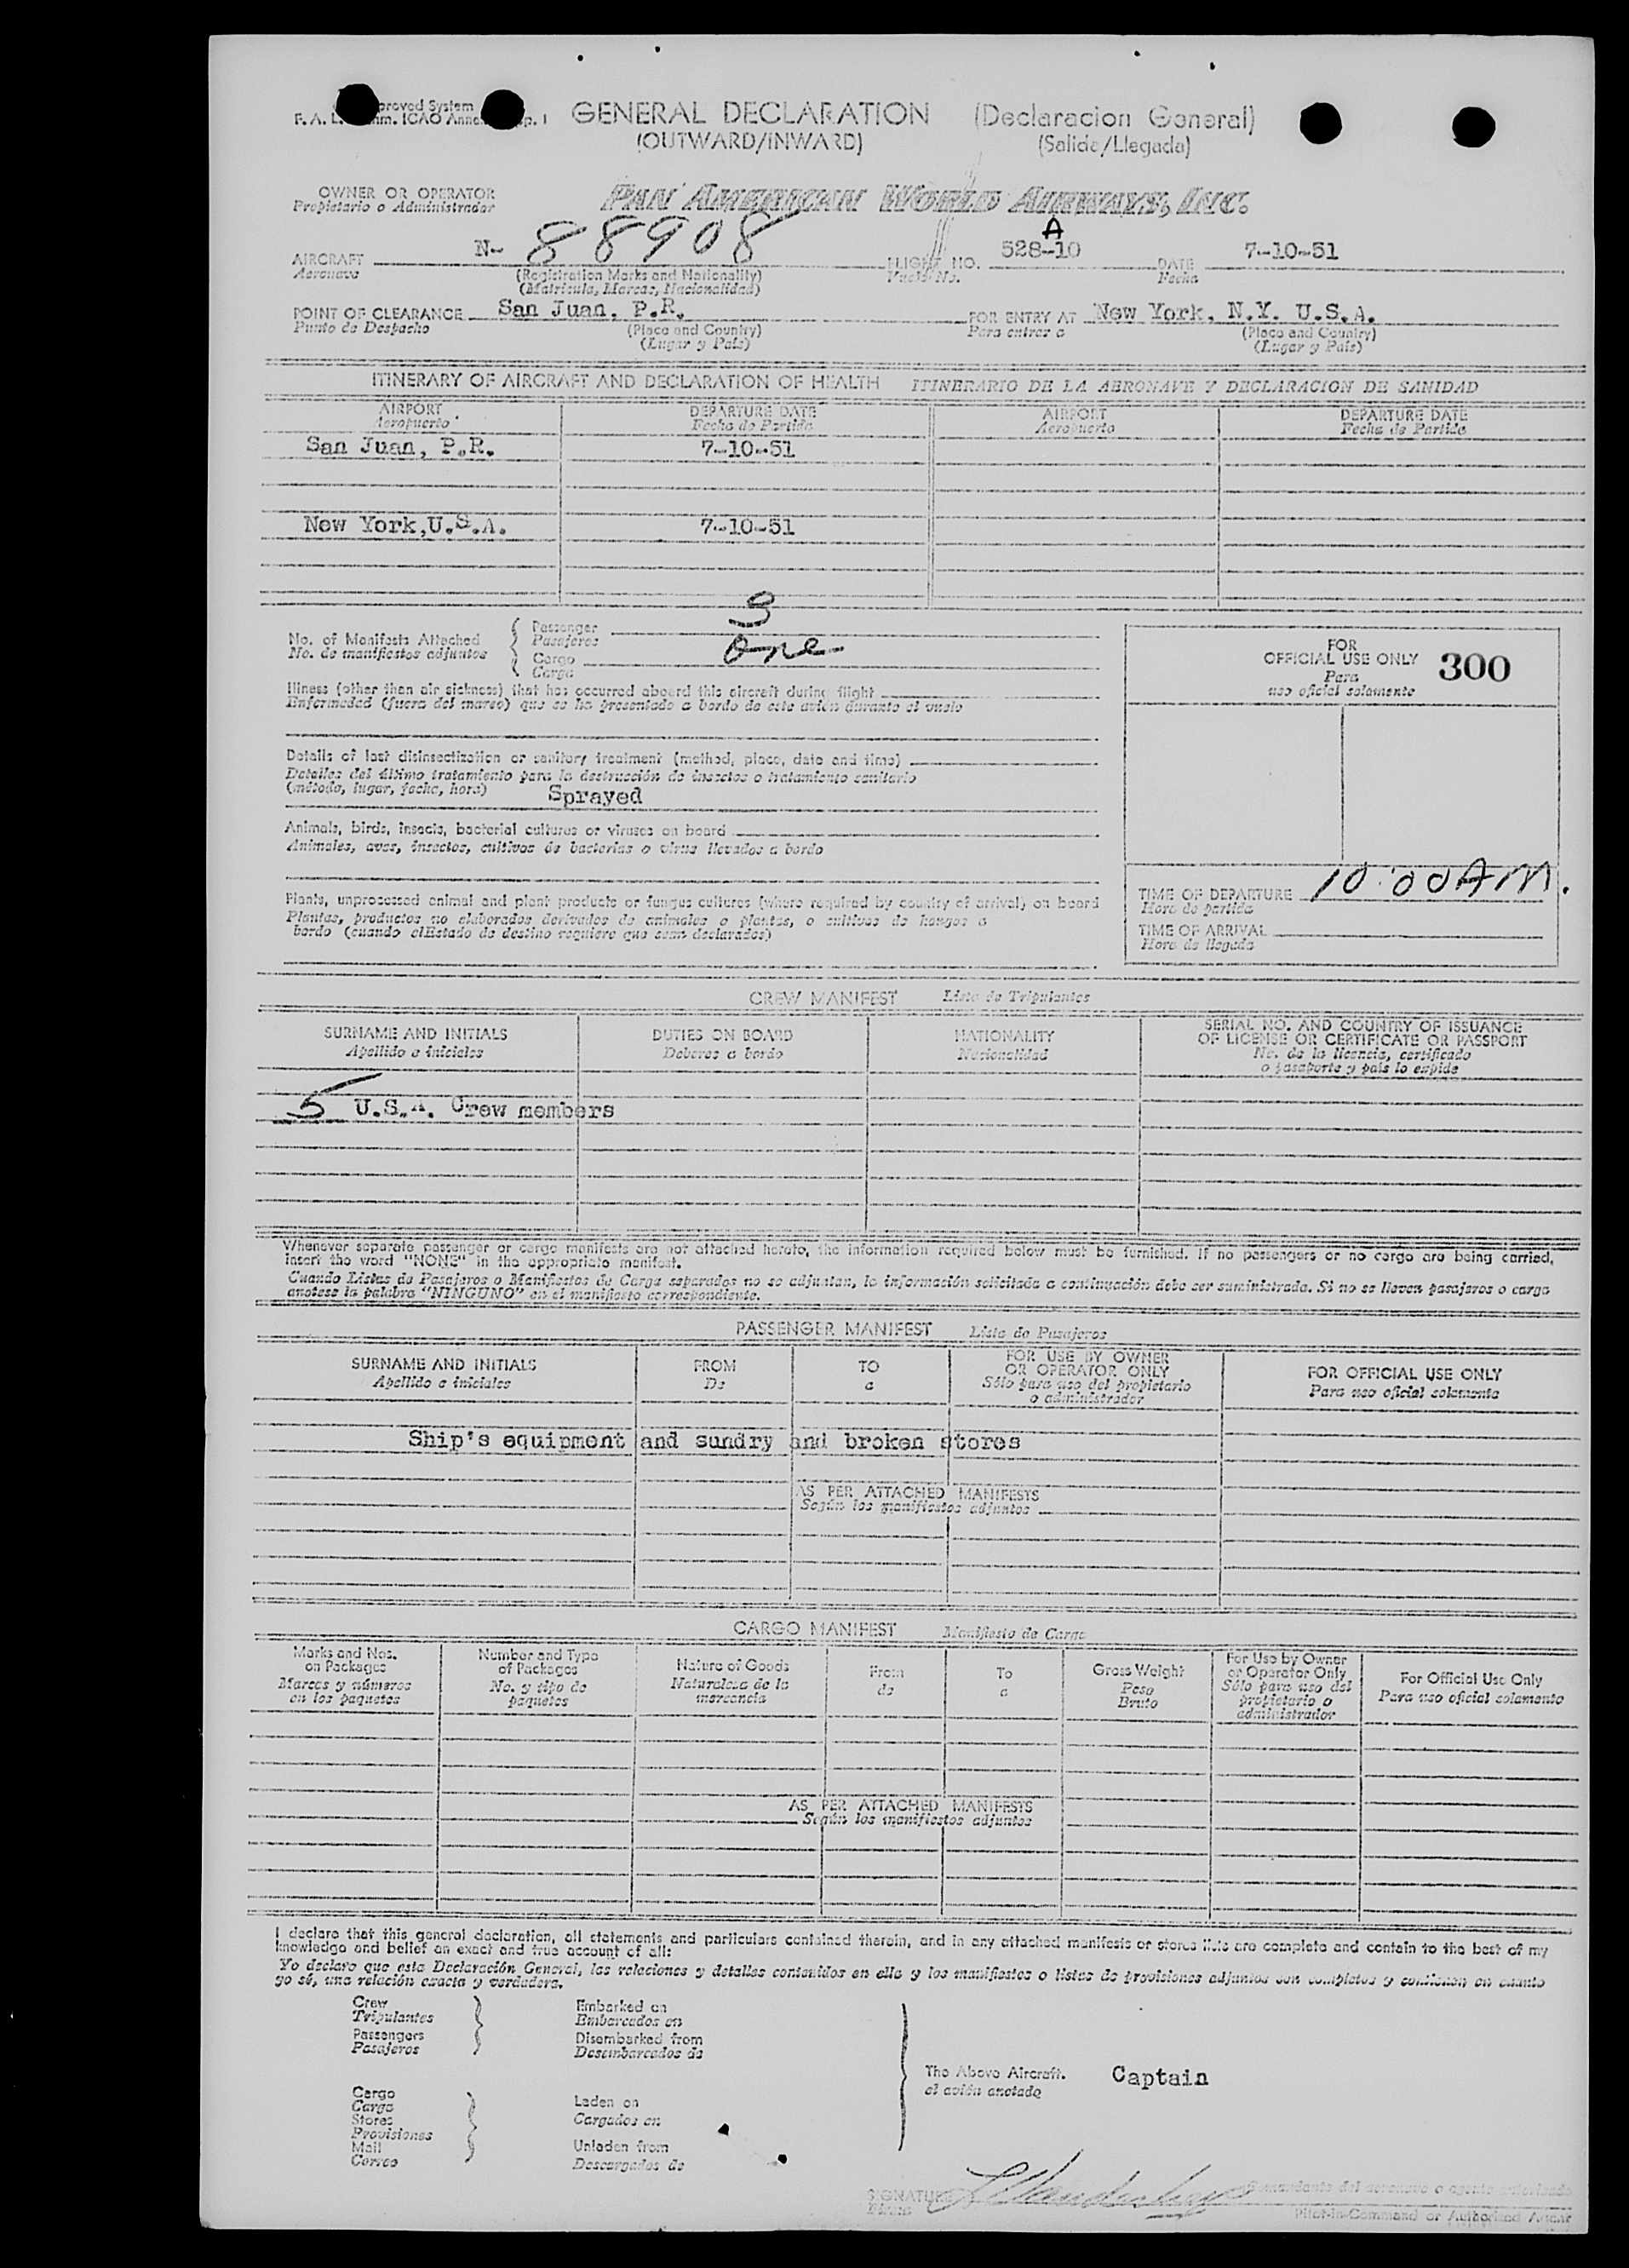 GENERAL DECLARATION (Declaracion General)
(OUTWARD/INWARD) (Salida/Llegada)
OWNER OR OPERATOR PAN AMERICAN WORLD AIRWAYS, INC.
Propietario o Administrador
A
AIRCRAFT N- 88908 FLIGHT NO. 528-10 DATE 7-10-51
Aeronave (Registration Marks and Nationality) Vuelo No. Fecha
(Matricula, Marcas, Nacionalidad)
POINT OF CLEARANCE San Juan, P.R. FOR ENTRY AT New York, N.Y. U.S.A.
Punto de Despacho (Place and Country) Para entrar a (Place and Country)
(Lugar y País) (Lugar y País)
ITINERARY OF AIRCRAFT AND DECLARATION OF HEALTH ITINERARIO DE LA AERONAVE Y DECLARACION DE SANIDAD
AIRPORT DEPARTURE DATE AIRPORT DEPARTURE DATE
Aeropuerto Fecha de Partida Aeropuerto Fecha de Partida
San Juan, P.R. 7-10-51
New York,U.S.A. 7-10-51
No. of Manifests Attached Passenger
No. de manifiestos adjuntos Pasajeros
Cargo One
Carga
FOR
OFFICIAL USE ONLY 300
Para
uso oficial solamente
Illness (other than air sickness) that has occurred aboard this aircraft during flight
Enfermedad (fuera del mareo) que se ha presentado a bordo de este avión durante el vuelo
Details of last disinsectization or sanitary treatment (method, place, date and time)
Detalles del último tratamiento para la destrucción de insectos o tratamiento sanitario
(método, lugar, fecha, hora) Sprayed
Animals, birds, insects, bacterial cultures or viruses on board
Animales, aves, insectos, cultivos de bacterias o virus llevados a bordo
Plants, unprocessed animal and plant products or fungus cultures (where required by country of arrival) on board
Plantas, productos no elaborados derivados de animales o plantas, o cultivos de hongos a
bordo (cuando elEstado de destino requiere que sean declarados)
TIME OF DEPARTURE 10:00AM.
Hora de partida
TIME OF ARRIVAL
Hora de llegada
CREW MANIFEST Lista de Tripulantes
SURNAME AND INITIALS DUTIES ON BOARD NATIONALITY SERIAL NO. AND COUNTRY OF ISSUANCE
Apellido e iniciales Deberes a bordo Nacionalidad OF LICENSE OR CERTIFICATE OR PASSPORT
No. de la licencia, certificado
o pasaporte y país lo expide
5 U.S.A. Crew members
Whenever separate passenger or cargo manifests are not attached hereto, the information required below must be furnished. If no passengers or no cargo are being carried,
insert the word "NONE" in the appropriate manifest.
Cuando Listas de Pasajeros o Manifiestos de Carga separados no se adjuntan, la información solicitada a continuación debe ser suministrada. Si no se lleven pasajeros o carga
anotese la palabra "NINGUNO" en el manifiesto correspondiente.
PASSENGER MANIFEST Lista de Pasajeros
SURNAME AND INITIALS FROM TO FOR USE BY OWNER FOR OFFICIAL USE ONLY
Apellido e iniciales De a OR OPERATOR ONLY Para uso oficial solamente
Sólo para uso del propietario
o administrador
Ship's equipment and sundry and broken stores
AS PER ATTACHED MANIFESTS
Según los manifiestos adjuntos
CARGO MANIFEST Manifiesto de Carga
Marks and Nos. Number and Type Nature of Goods From To Gross Weight For Use by Owner For Official Use Only
on Packages of Packages Naturaleza de la de a Peso or Operator Only Para uso oficial solamente
Marcas y números No. y tipo de mercancia Bruto Sólo para uso del
en los paquetes paquetes propietario o
administrador
AS PER ATTACHED MANIFESTS
Según los manifiestos adjuntos
I declare that this general declaration, all statements and particulars contained therein, and in any attached manifests or stores lists are complete and contain to the best of my
knowledge and belief an exact and true account of all:
Yo declaro que esta Declaración General, las relaciones y detalles contenidos en ella y los manifiestos o listas de provisiones adjuntos son completos y contienen en cuanto
yo sé, una relación exacta y verdadera.
Crew Embarked on
Tripulantes Embarcados en
Passengers Disembarked from
Pasajeros Desembarcados de
The Above Aircraft. Captain
el avión anotado
Cargo Laden on
Carga Cargados en
Stores
Provisiones
Mail Unladen from
Correo Descargados de
SIGNATURE
Pilot-in-Command or Authorized Agent